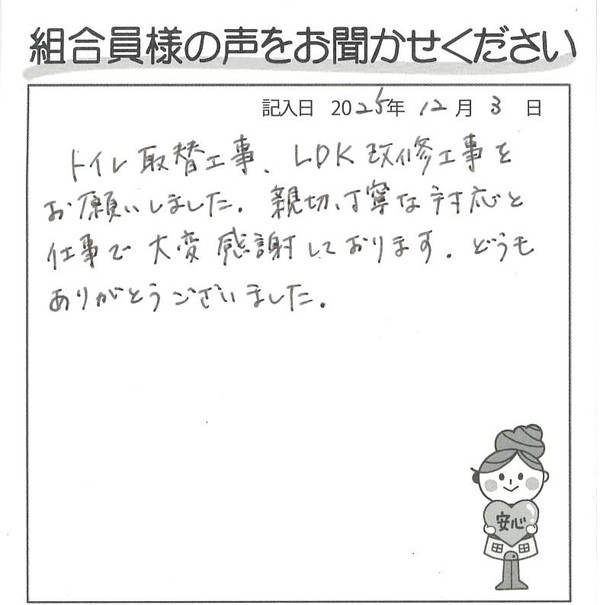 組合員様の声をお聞かせください
記入日 2025年 12月 3日
トイレ取替工事、LDK改修工事を
お願いしました。親切、丁寧な対応と
仕事で大変感謝しております。どうも
ありがとうございました。
安心